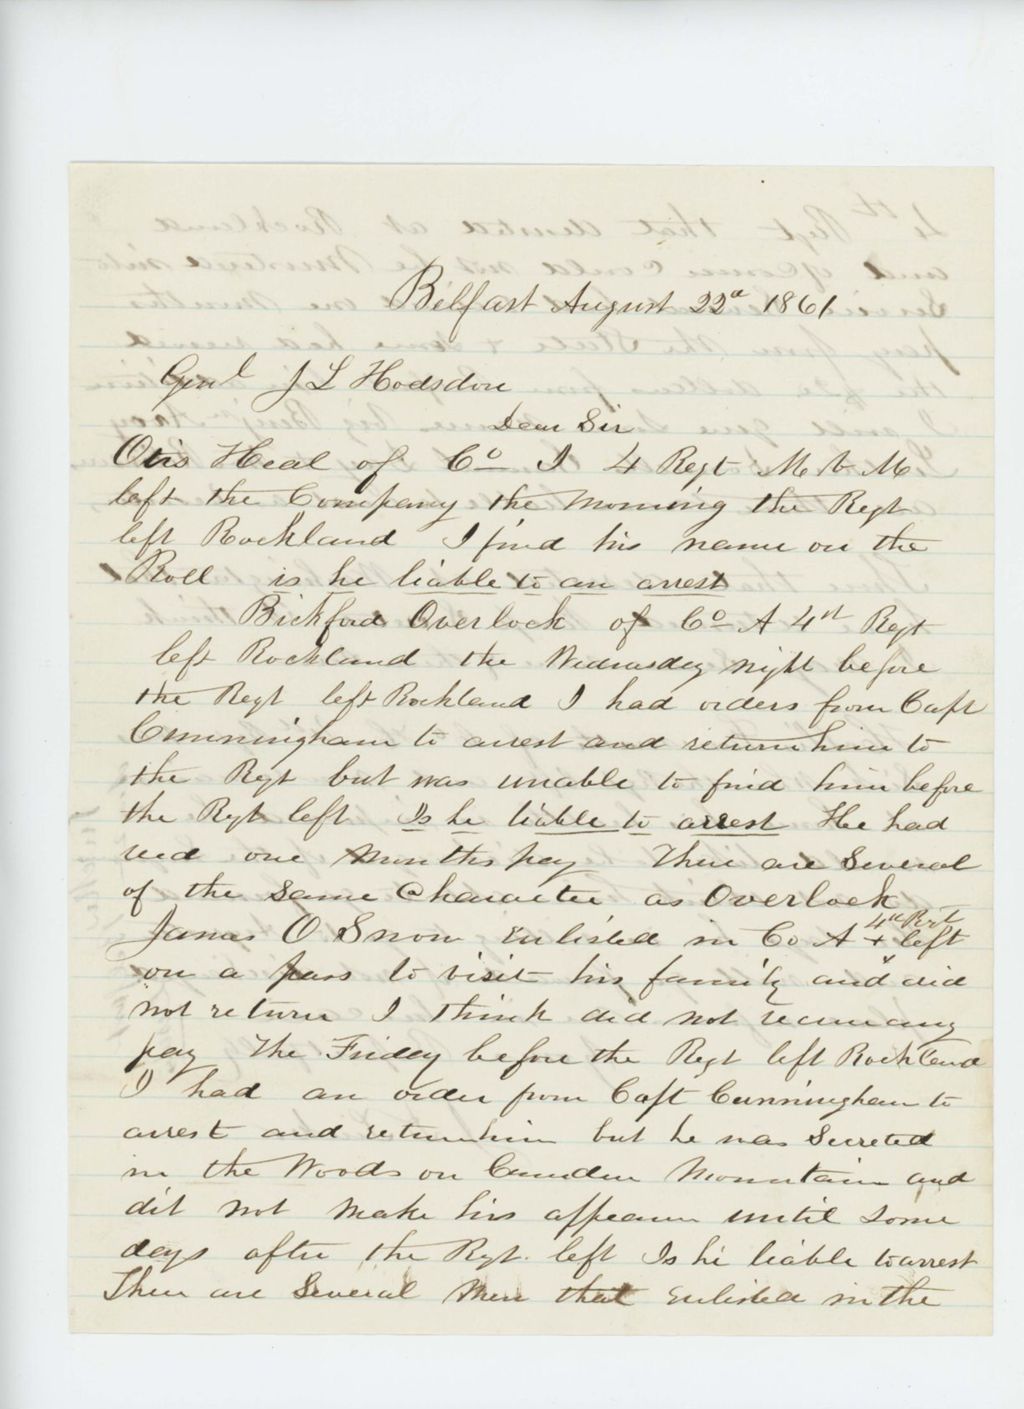 Belfast August 22d 1861
Genl J L Hodsdon
Dear Sir
Otis Heal of Co I 4 Regt M V M
left the Company the morning the Regt
left Rockland I find his name on the
Roll is he liable to an arrest
Bickford Overlock of Co A 4th Regt
left Rockland the Wednesday night before
the Regt left Rockland I had orders from Capt
Cunningham to arrest and return him to
the Regt but was unable to find him before
the Regt left Is he liable to arrest He had
recd one months pay There are Several
of the Same Character as Overlock
James O Snow Enlisted in Co A 4th Regt + left
on a pass to visit his family and did
not return I think did not receive any
pay The Friday before the Regt left Rockland
I had an order from Capt Cunningham to
arrest and return him but he was Secreted
in the Woods on Camden Mountain and
dit not make his appearn until some
days after the Regt. left Is he liable to arrest
There are Several Men that Enlisted in the